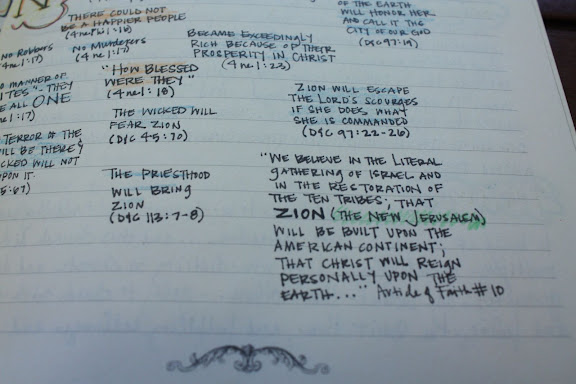 THERE COULD NOT
BE A HAPPIER PEOPLE
(4 ne 1:16)
No Robbers
(4 ne 1:17)
No Murderers
(4 ne 1:17)
O MANNER OF
ITES" - THEY
E ALL ONE
1:17)
TERROR OF THE
ILL BE THERE;
ICKED WILL NOT
UPON IT.
5:67)
BECAME EXCEEDINGLY
RICH BECAUSE OF THEIR
PROSPERITY IN CHRIST
(4 ne 1:23)
"HOW BLESSED
WERE THEY"
(4 ne 1:18)
THE WICKED WILL
FEAR ZION
(D&C 45:70)
THE PRIESTHOOD
WILL BRING
ZION
(D&C 113:7-8)
OF THE EARTH
WILL HONOR HER
AND CALL IT THE
CITY OF OUR GOD
(D&C 97:19)
ZION WILL ESCAPE
THE LORD'S SCOURGES
IF SHE DOES WHAT
SHE IS COMMANDED
(D&C 97:22-26)
"WE BELIEVE IN THE LITERAL
GATHERING OF ISRAEL AND
IN THE RESTORATION OF
THE TEN TRIBES; THAT
ZION (THE NEW JERUSALEM)
WILL BE BUILT UPON THE
AMERICAN CONTINENT;
THAT CHRIST WILL REIGN
PERSONALLY UPON THE
EARTH..." Article of Faith #10